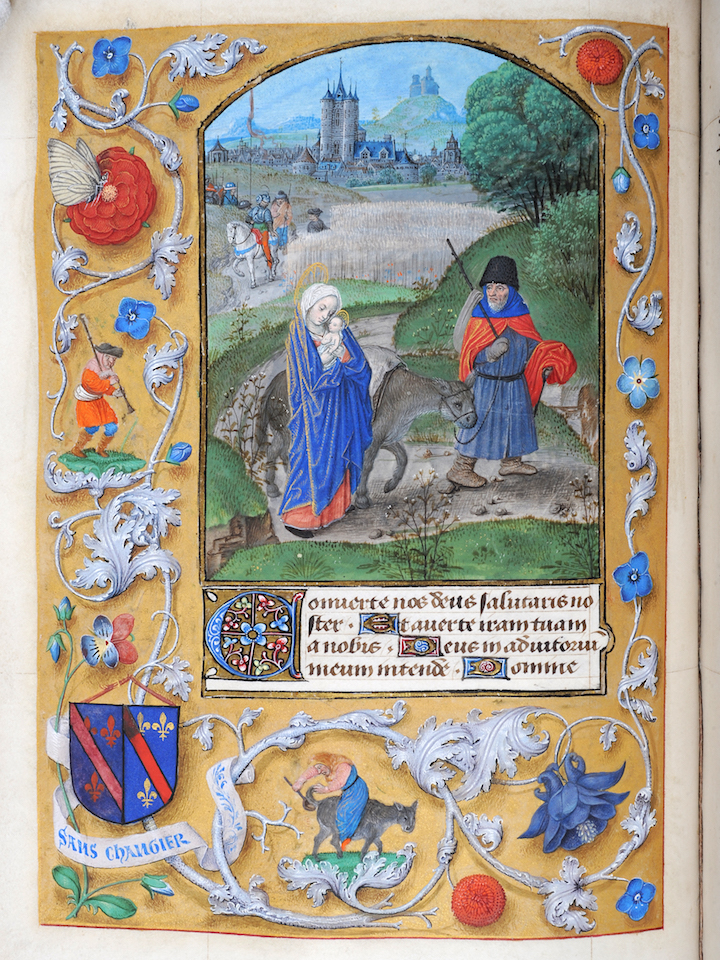 Conuerte nos deus salutaris no
ster . Et auerte iram tuam
a nobis . Deus in adiutoriū
meum intende . Domine
SANS CHANGIER